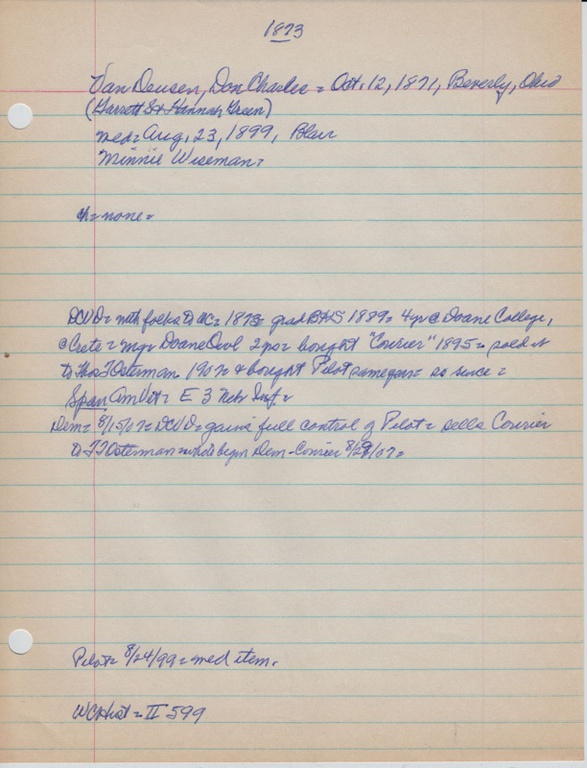 1873
Van Deusen, Don Charles = Oct. 12, 1871, Beverly, Ohio
(Garrett S & Hannah Green)
med = Aug. 23, 1899, Blair
Minnie Wiseman =
ch = none =
DCVD = with folks to WC = 1873 = grad BHS 1889 = 4 yr @ Doane College,
@ Crete = mgr Doane Owl 2 yrs = bought "Courier" 1895 = sold it
to Thos T Osterman 190 & bought Pilot same year = so since =
Span Am Vet = E 3 Neb Inf =
Dem = 8/15/07 = DCVD = gains full control of Pilot = sells Courier
to TT Osterman = who'll begin Dem-Courier 8/29/07 =
Pilot = 8/24/99 = med item.
WCHist = II 599